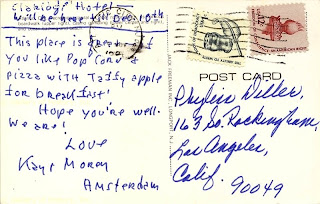 Claridge Hotel
Will be here till Dec. 10th
This place is great if
you like Pop Corn &
pizza with Taffy apple
for breakfast!
Hope you're well.
We are!
Love
Kaye Morey
Amsterdam
POST CARD
Phyllis Diller,
163 So. Rockingham,
Los Angeles,
Calif.
90049